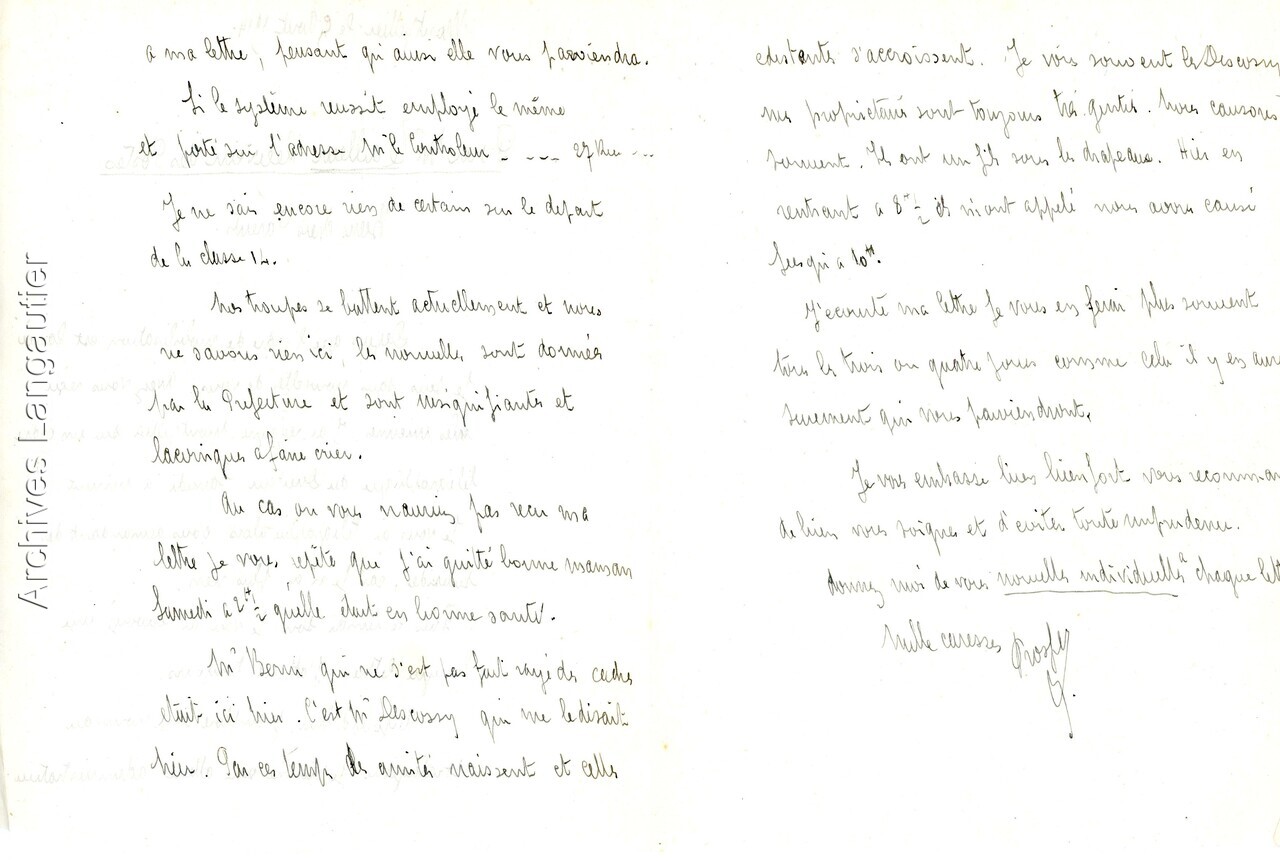 a ma lettre, pensant qu'ainsi elle vous parviendra.
Si le système reussit employé le même
et porté sur l'adresse Mr le Controleur _ _ _ _ 27 Rue ...
Je ne sais encore rien de certain sur le depart
de la classe 14.
Nos troupes se battent actuellement et nous
ne savons rien ici, les nouvelles sont données
par la Prefecture et sont insignifiantes et
laconiques a faire crier.
Au cas ou vous n'auriez pas recu ma
lettre je vous repète que j'ai quitté bonne maman
Samedi a 2H 1/2 qu'elle était en bonne santé.
Mr Bernu qui ne s'est pas fait rayé des cadres
etait ici hier. C'est Mr Descossy qui me le disait
hier. Par ces temps des amitiés naissent et celles
existantes s'accroissent. Je vois souvent les Descossy
mes proprietaires sont toujours très gentils. Nous causons
souvent. Ils ont un fils sous les drapeaux. Hier en
rentrant a 8H 1/2 ils m'ont appelé nous avons causé
jusqu'a 10H.
J'ecourte ma lettre je vous en ferai plus souvent
tous les trois ou quatre jours comme cela il y en aura
surement qui vous parviendront.
Je vous embrasse bien bien fort vous recomman
de bien vous soigner et d'eviter toute imprudence.
donnez moi de vous nouvelles individuelles a chaque lett
Mille caresses Prosper
Archives Langautier